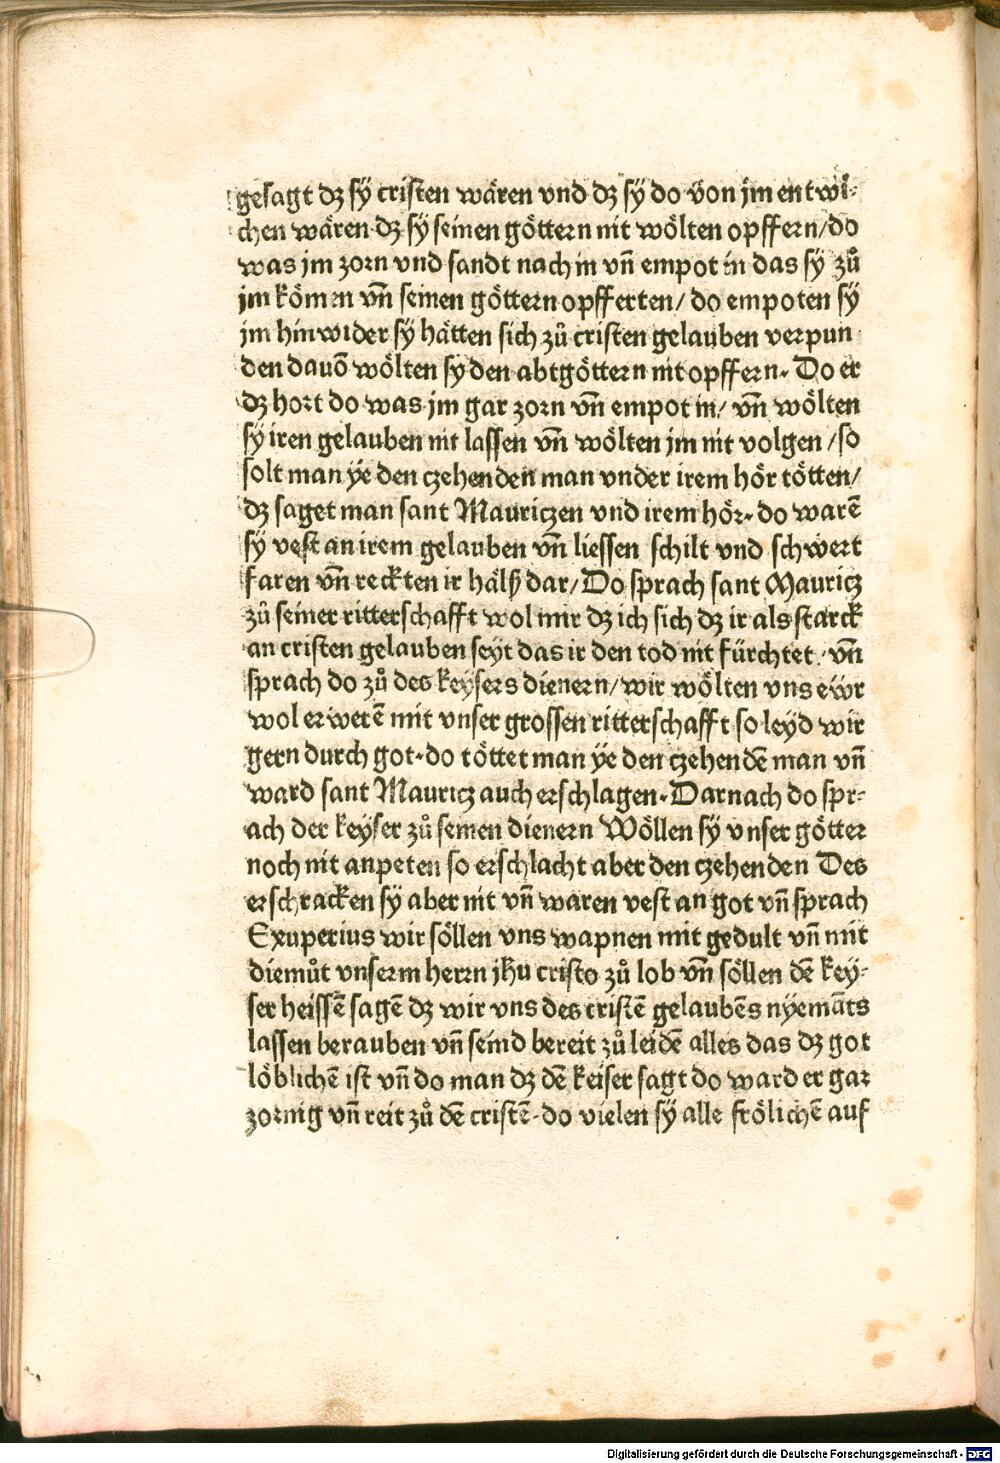 gesagt dz sÿ cristen wären vnd dz sÿ do von jm entwi-
chen wären dz sÿ seinen göttern nit wölten opffern/do
was jm zorn vnd sandt nach in vn̄ empot in das sÿ zů
jm kömen vn̄ seinen göttern opfferten/ do empoten sÿ
jm hinwider sÿ hätten sich zů cristen gelauben verpun
den dauō wölten sy den abtgöttern nit opffern. Do er
dz hort do was jm gar zorn vn̄ empot in/ vn̄ wölten
sÿ iren gelauben nit lassen vn̄ wölten jm nit volgen/so
solt man ÿe den czehenden man vnder irem hör tötten/
dz saget man sant Mauriczen vnd irem hör. do warē
sÿ vest an irem gelauben vn̄ liessen schilt vnd schwert
faren vn̄ reckten ir hälß dar/ Do sprach sant Mauricz
zů seiner ritterschafft wol mir dz ich sich dz ir als starck
an cristen gelauben seyt das ir den tod nit fürchtet. vn̄
sprach do zů des keysers dienern/wir wölten vns ewr
wol erwerē mit vnser grossen ritterschafft so leyd wir
gern durch got. do töttet man ÿe den czehendē man vn̄
ward sant Mauricz auch erschlagen. Darnach do spr-
ach der keyser zů seinen dienern Wöllen sÿ vnser götter
noch nit anpeten so erschlacht aber den czehenden Des
erschracken sÿ aber nit vn̄ waren vest an got vn̄ sprach
Exuperius wir söllen vns wapnen mit gedult vn̄ mit
diemůt vnserm herrn jhu cristo zů lob vn̄ söllen dē key-
ser heissē sagē dz wir vns des cristē gelaubēs nÿemāts
lassen berauben vn̄ seind bereit zů leidē alles das dz got
löblichē ist vn̄ do man dz dē keiser sagt do ward er gar
zornig vn̄ reit zů dē cristē. do vielen sÿ alle frölichē auf
Digitalisierung gefördert durch die Deutsche Forschungsgemeinschaft - DFG